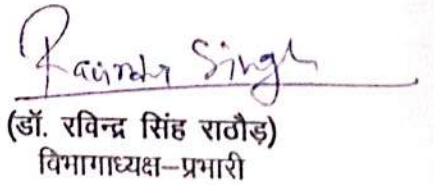 Ravindra Singh
(डॉ. रविन्द्र सिंह राठौड़)
विभागाध्यक्ष–प्रभारी